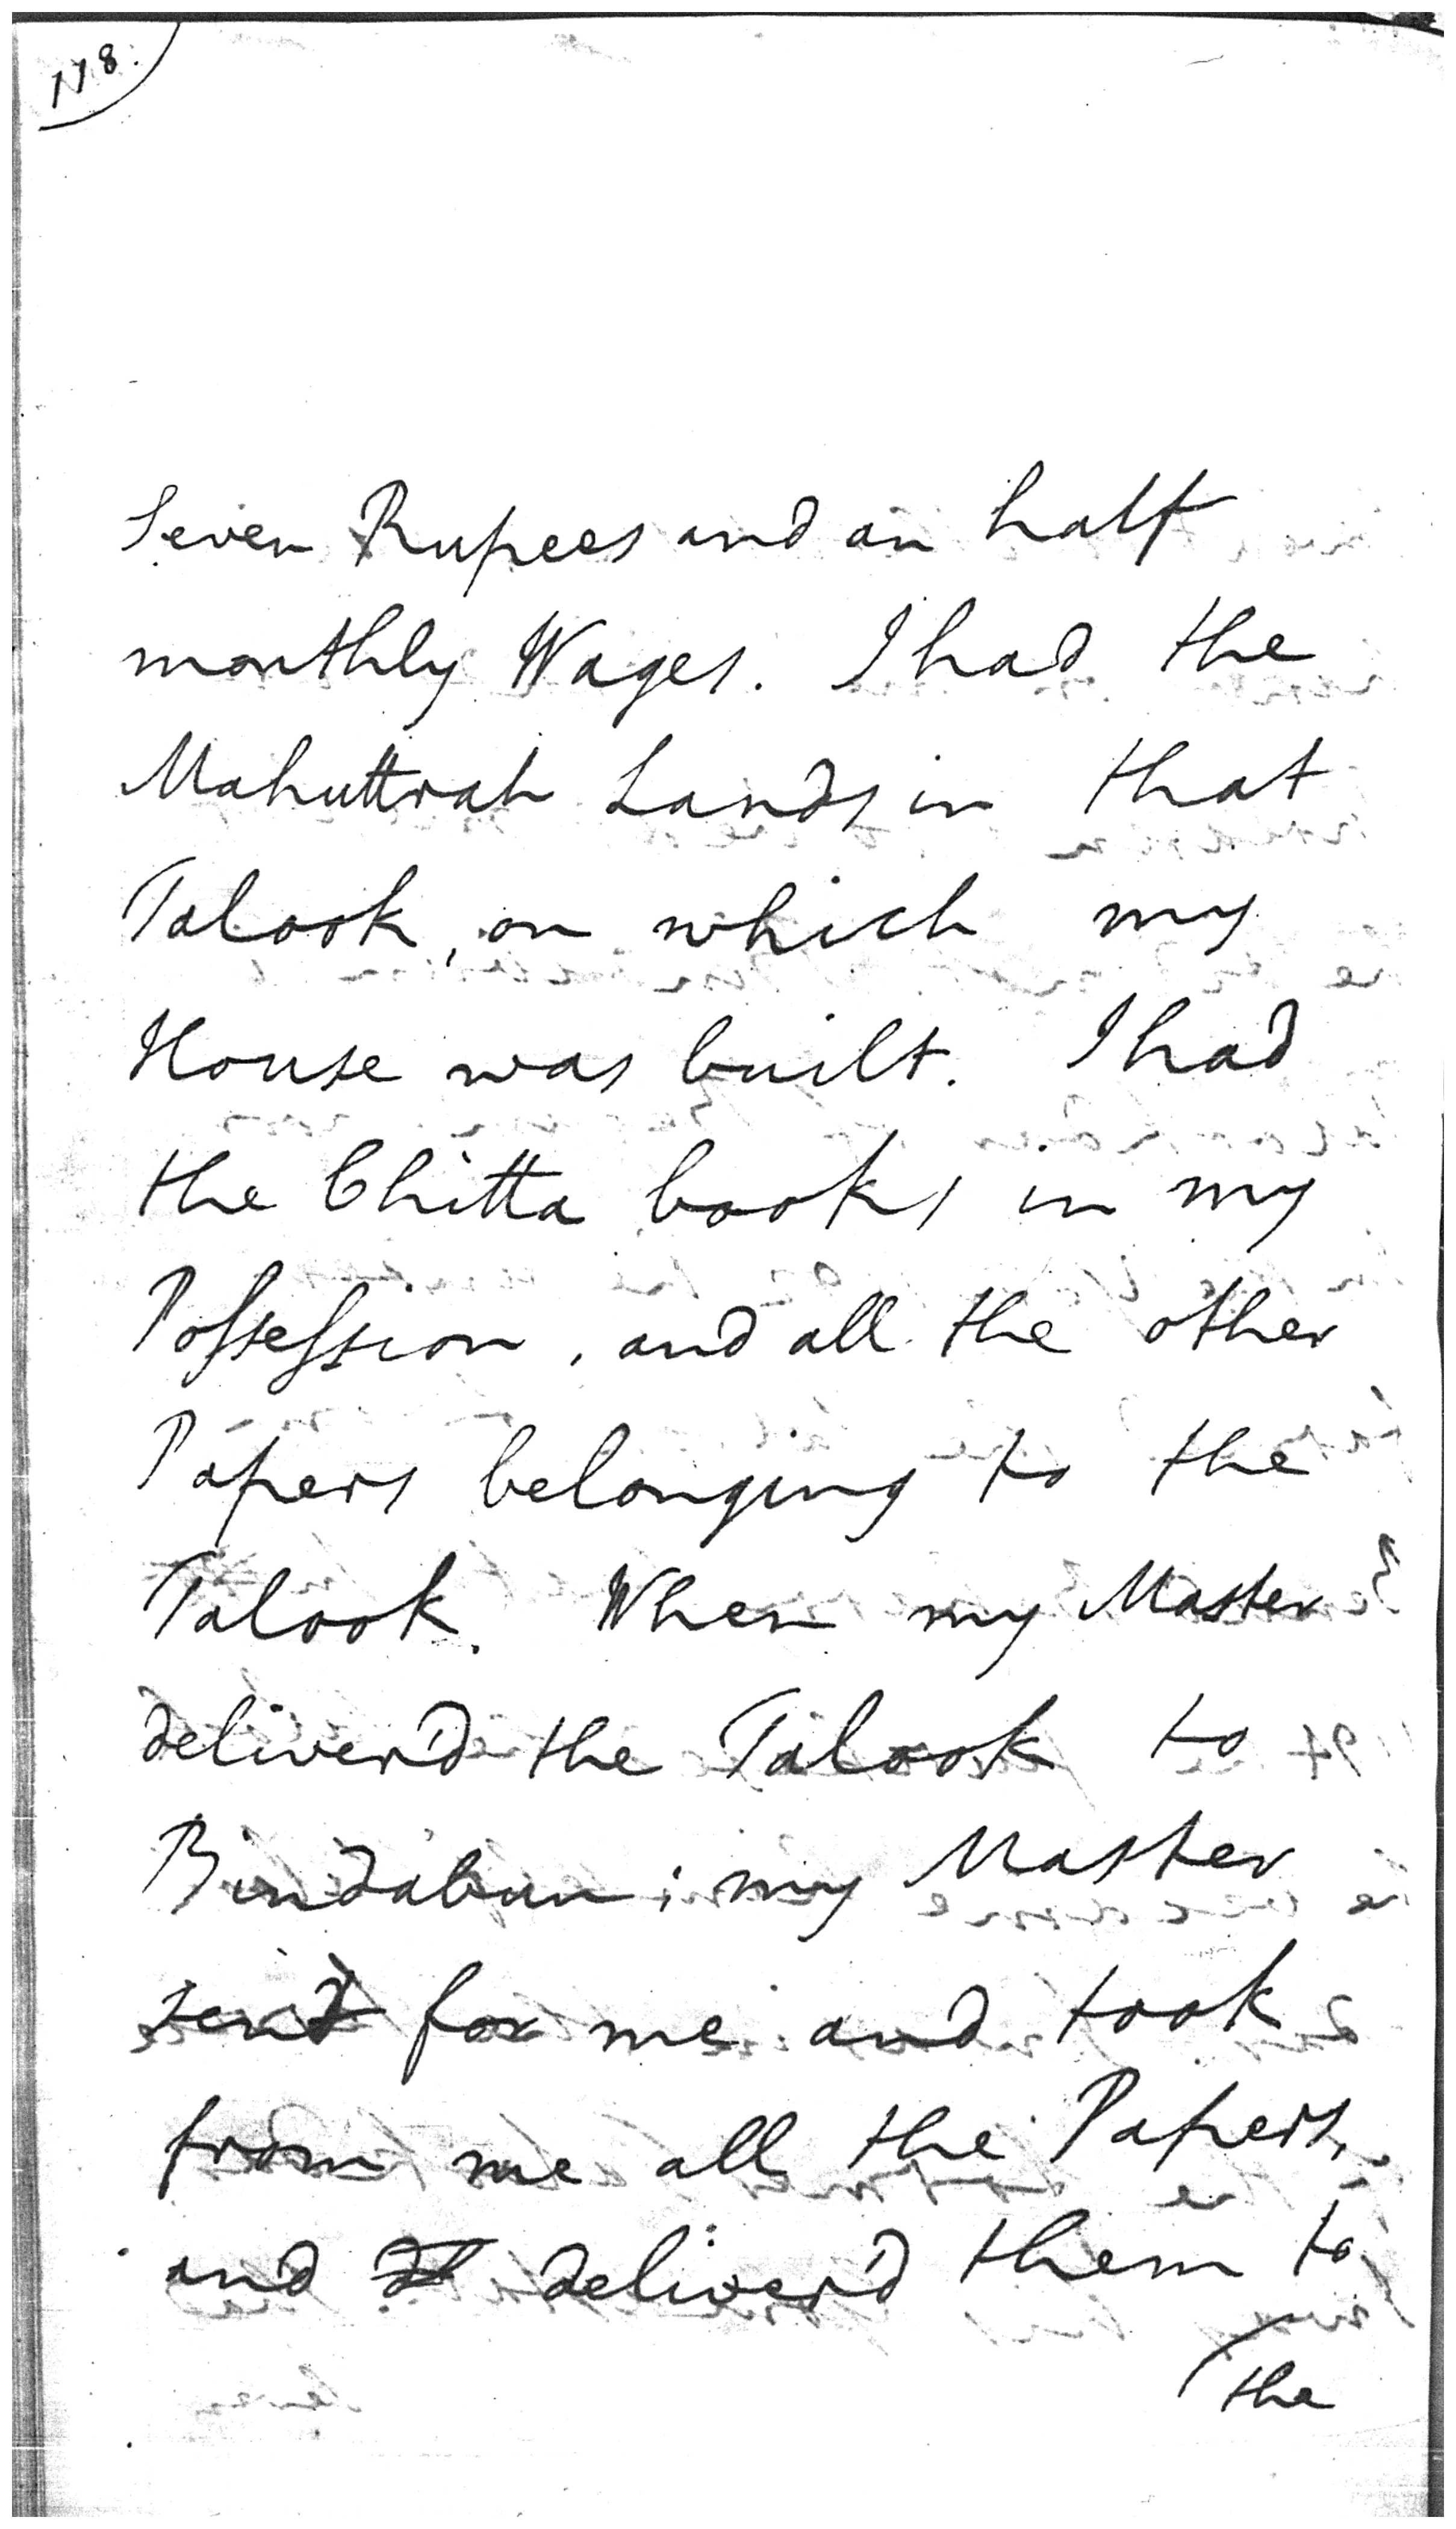 118.
Seven Rupees and an half
monthly Wages. I had the
Mahuttrah Lands in that
Talook, on which my
House was built. I had
the Chitta books in my
Possession, and all the other
Papers belonging to the
Talook. When my Master
deliver'd the Talook to
Bindabun; my Master
sent for me and took
from me all the Papers,
and deliver'd them to
the